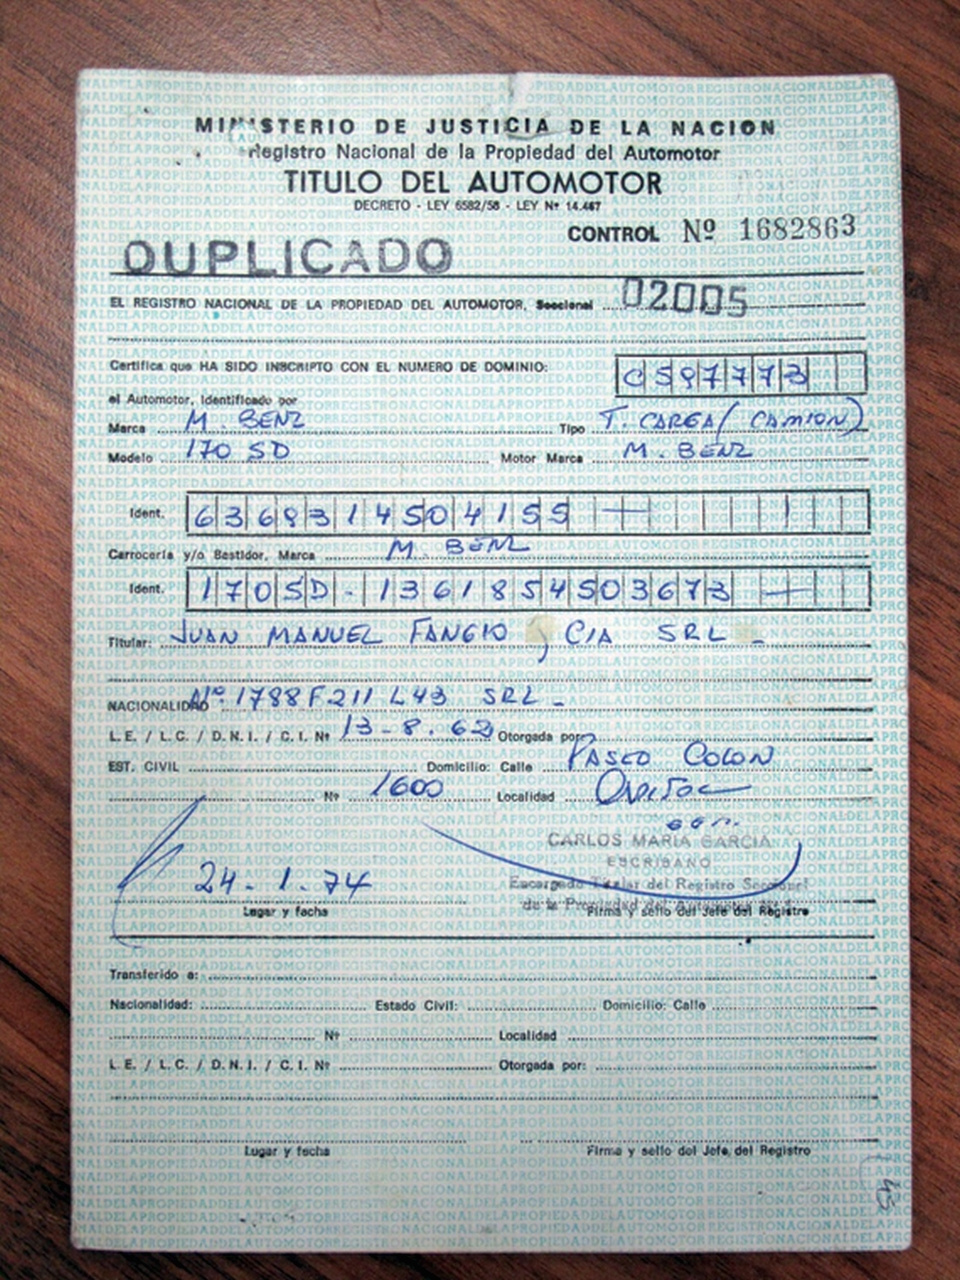 MINISTERIO DE JUSTICIA DE LA NACION
Registro Nacional de la Propiedad del Automotor
TITULO DEL AUTOMOTOR
DECRETO - LEY 6582/58 - LEY Nº 14.467
CONTROL Nº 1682863
DUPLICADO
EL REGISTRO NACIONAL DE LA PROPIEDAD DEL AUTOMOTOR, Seccional 02005
Certifica que HA SIDO INSCRIPTO CON EL NUMERO DE DOMINIO: C597773
el Automotor, identificado por
Marca M. BENZ Tipo T. CARGA (CAMION)
Modelo 170 SD Motor Marca M. BENZ
Ident. 6369314504155
Carrocería y/o Bestidor, Marca M. BENZ
Ident. 170SD-1361854503673
Titular: JUAN MANUEL FANGIO y CIA SRL -
NACIONALIDAD Nº 1788 F 211 L 43 SRL -
L.E. / L.C. / D.N.I. / C.I. Nº 13-8.62 Otorgada por:
EST. CIVIL Domicilio: Calle PASEO COLON
Nº 1600 Localidad
CARLOS MARIA GARCIA
ESCRIBANO
Encargado Titular del Registro Seccional
24-1.74 de la Propiedad del Automotor
Lugar y fecha Firma y sello del Jefe del Registro
Transferido a:
Nacionalidad: Estado Civil: Domicilio: Calle
Nº Localidad
L.E. / L.C. / D.N.I. / C.I. Nº Otorgada por:
Lugar y fecha Firma y sello del Jefe del Registro